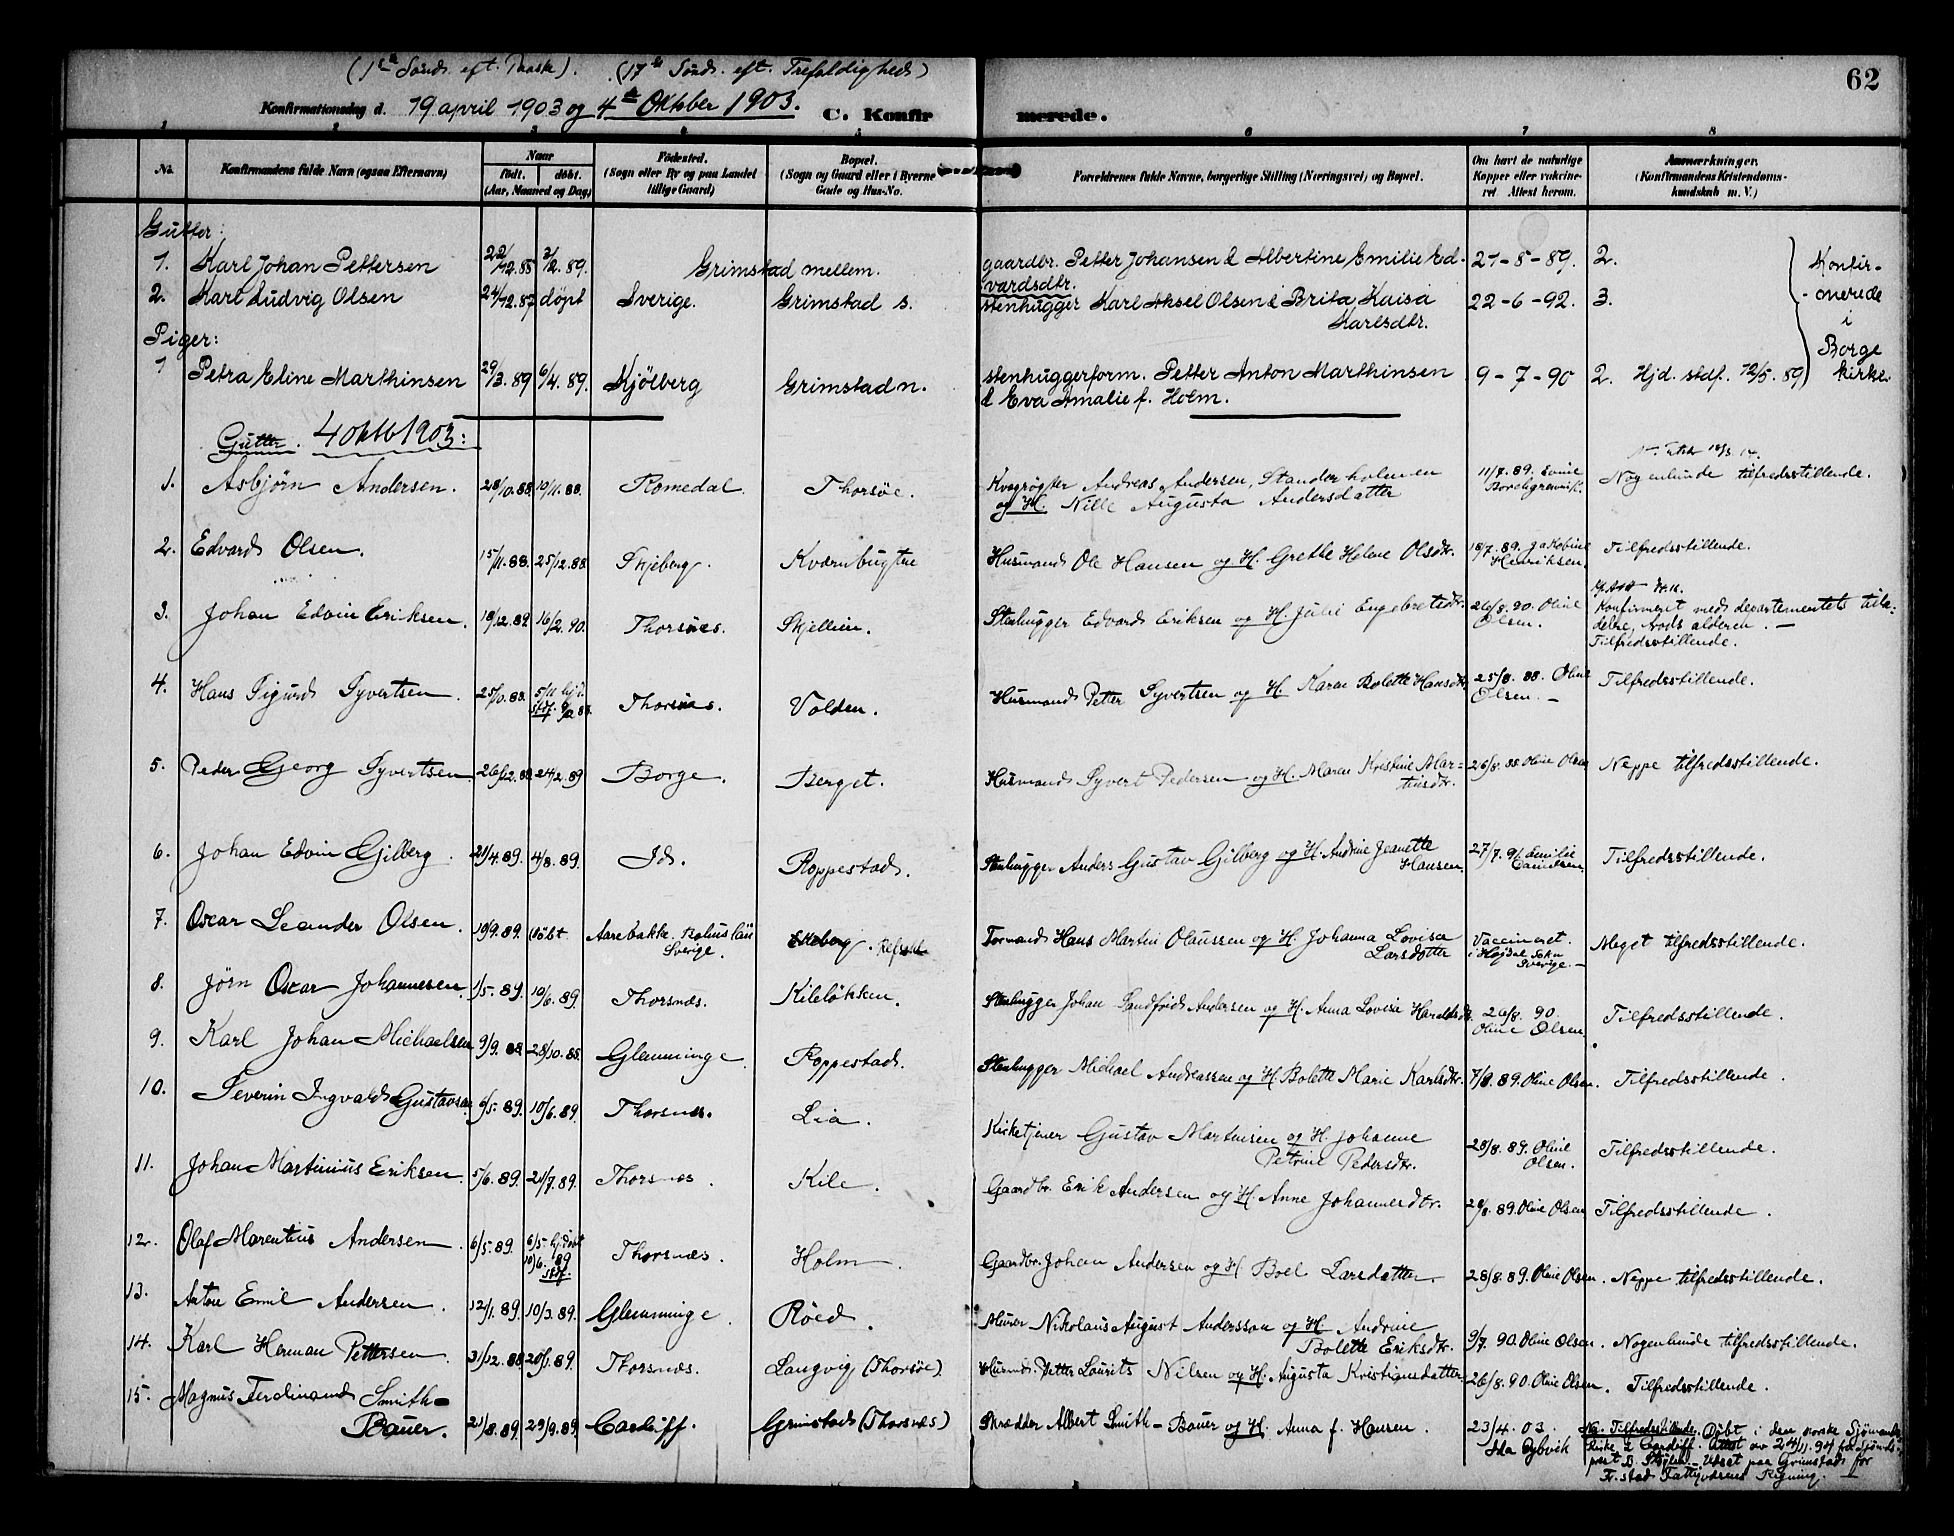 (1ste Sønd. eft. Paask). (17de Sønd. eft. Trefoldigheds)
62
Konfirmationsdag d. 19 april 1903 og 4de Oktober 1903. C. Konfirmerede.
1 2 3 4 5 6 7 8
No. Konfirmandens fulde Navn (ogsaa Efternavn) Naar født. døbt. (Aar, Maaned og Dag) Fødested. (Sogn eller By og paa Landet tillige Gaard) Bopæl. (Sogn og Gaard eller i Byerne Gade og Hus-No. Forældrenes fulde Navne, borgerlige Stilling (Næringsvei) og Bopæl. Om havt de naturlige Kopper eller vaccineret Attest herom. Anmærkninger. (Konfirmandens Kristendomskundskab m. V.)
Gutter:
1. Karl Johan Pettersen 22/12.88 2/2.89. Grimstad mellem. gaardbr. Petter Johansen & Albertine Emilie Edvardsdtr. 21-8-89. 2.
2. Karl Ludvig Olsen 24/12.87 døpt Sverige. Grimstad s. stenhugger Karl Aksel Olsen & Brita Kaisa Karlsdtr. 22-6-92. 3.
Konfirmerede i Borge kirke.
Piger:
1 Petra Eline Marthinsen 29/3.89 6/4.89. Kjølberg Grimstad n. stenhuggerform. Petter Anton Marthinsen & Eva Amalie f. Holm. 9-7-90 2. Hjd. stdf. 12/5.89
Gutter. 4 oktb 1903:
1. Asbjørn Andersen. 28/10.88. 10/11.88. Romedal. Thorsøe. Kvægrøgter Andreas Andersen, Standerholmen og H. Nille Augusta Andersdatter 11/7.89. Nogenlunde tilfredsstillende.
2. Edvard Olsen. 15/11.88. 25/12.88. Skjeberg. Kværnbugten Husmand Ole Hansen og H. Grethe Helene Olsdtr. 18/7.89. Jakobine Henriksen. Tilfredsstillende.
3. Johan Edvin Eriksen. 18/12.89 16/2.90. Thorsnes. Skjellin. Stenhugger Edvard Eriksen og H. Julie Engebretsdtr. 26/8.90. Oline Olsen. Konfirmeret med departementets tilladelse, trods alderen. — Tilfredsstillende.
4. Hans Sigurd Syvertsen. 25/10.88. 5/11 hjd. stdf. Thorsnes. Volden. Husmand Petter Syvertsen og H. Karen Bolette Hansdtr. 25/8.88. Oline Olsen. — Tilfredsstillende.
5. Peder Georg Syvertsen 26/12.88 24/2.89 Borge. Berget. Husmand Syvert Pedersen og H. Maren Kristine Martinsdtr. 26/8.88. Oline Olsen Neppe tilfredsstillende.
6. Johan Edvin Gilberg. 21/4.89. 4/8.89. Id. Roppestad. Stenhugger Anders Gustav Gilberg og H. Andrine Jeanette Hansen. 27/7.91 Emilie Tilfredsstillende.
7. Oscar Leander Olsen. 19/9.89. døbt Aarebakke. Bahuslän Sverige. Ekeberg. Refsdal Formand Hans Martin Olaussen og H. Johanna Lovisa Larsdatter Vaccineret. i Högdal Sokn Sverige. — Meget tilfredsstillende.
8. Jørn Oscar Johannesen. 1/5.89. 10/6.89. Thorsnæs. Kileløkken. Stenhugger Johan Sandfrid Andersen og H. Anna Lovise Haraldsdtr. 26/8.90. Oline Olsen Tilfredsstillende.
9. Karl Johan Michaelsen 9/9.88 28/10.88. Glemminge. Roppestad. Stenhugger Michael Andreassen og H. Bolette Marie Karlsdtr. 7/8.89. Oline Olsen. Tilfredsstillende.
10. Severin Ingvald Gustavsen 6/5.89. 10/6.89. Thorsnæs. Lia. Kirketjener Gustav Martinsen og H. Johanne Petrine Pedersdtr. 28/8.89. Oline Olsen. Tilfredsstillende.
11. Johan Martinius Eriksen 5/6.89. 21/7.89. Thorsnæs. Kile. Gaardbr. Erik Andersen og H. Anne Johannesdtr. 28/8.89. Oline Olsen Tilfredsstillende.
12. Olaf Marentius Andersen. 6/5.89. 6/5. hjdøbt 10/6.89 stdf. Thorsnæs. Holm. Gaardbr. Johan Andersen og H. Boel Larsdatter. 28/8.89. Oline Olsen. Neppe tilfredsstillende.
13. Anton Emil Andersen. 12/1.89. 10/3.89. Glemminge. Røed. Murer Nikolaus August Andersson og H. Andrine Bolette Eriksdtr. 9/7.90. Oline Olsen. Nogenlunde tilfredsstillende.
14. Karl Herman Pettersen. 31/12.88 20/1.89. Thorsnæs. Langvig (Thorsøe). Husmd. Petter Laurits Nilsen og H. Augusta Kristiansdatter. 26/8.90. Oline Olsen. Tilfredsstillende.
15. Magnus Ferdinand Smith-Bauer. 21/8.89. 29/9.89 Cardiff. Grimstad (Thorsnæs) Skrædder Albert Smith-Bauer og H. Anna f. Hansen. 23/4.03. Ida Tilfredsstillende. Døbt i den norske Sjømandskirke i Cardiff. Attest av 24/11.94 fra Sjømdsprest Udsat paa Grimstad for Fr.stad Fattigvæsens Regning.